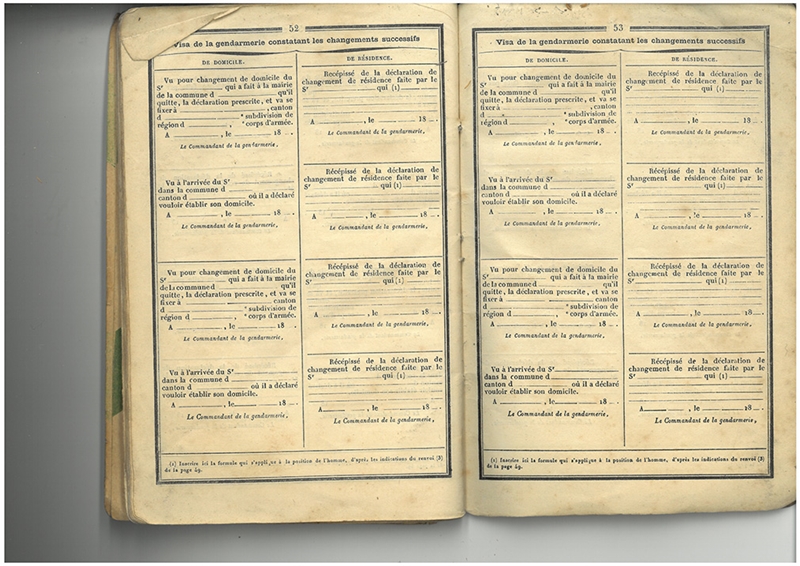 52
Visa de la gendarmerie constatant les changements successifs
DE DOMICILE.
Vu pour changement de domicile du
Sr qui a fait à la mairie
de la commune d qu'il
quitte, la déclaration prescrite, et va se
fixer à , canton
d e subdivision de
région d , e corps d'armée.
A , le 18 .
Le Commandant de la gendarmerie,
Vu à l'arrivée du Sr
dans la commune d
canton d où il a déclaré
vouloir établir son domicile.
A , le 18 .
Le Commandant de la gendarmerie,
Vu pour changement de domicile du
Sr qui a fait à la mairie
de la commune d qu'il
quitte, la déclaration prescrite, et va se
fixer à canton
d e subdivision de
région d , e corps d'armée.
A , le 18 .
Le Commandant de la gendarmerie,
Vu à l'arrivée du Sr
dans la commune d
canton d où il a déclaré
vouloir établir son domicile.
A , le 18 .
Le Commandant de la gendarmerie,
DE RÉSIDENCE.
Récépissé de la déclaration de
changement de résidence faite par le
Sr qui (1)
A , le 18 .
Le Commandant de la gendarmerie,
Récépissé de la déclaration de
changement de résidence faite par le
Sr qui (1)
A , le 18 .
Le Commandant de la gendarmerie,
Récépissé de la déclaration de
changement de résidence faite par le
Sr qui (1)
A , le 18 .
Le Commandant de la gendarmerie,
Récépissé de la déclaration de
changement de résidence faite par le
Sr qui (1)
A , le 18 .
Le Commandant de la gendarmerie,
(1) Inscrire ici la formule qui s'applique à la position de l'homme, d'après les indications du renvoi (3)
de la page 49.
53
Visa de la gendarmerie constatant les changements successifs
DE DOMICILE.
Vu pour changement de domicile du
Sr qui a fait à la mairie
de la commune d qu'il
quitte, la déclaration prescrite, et va se
fixer à , canton
d e subdivision de
région d , e corps d'armée.
A , le 18 .
Le Commandant de la gendarmerie,
Vu à l'arrivée du Sr
dans la commune d
canton d où il a déclaré
vouloir établir son domicile.
A , le 18 .
Le Commandant de la gendarmerie,
Vu pour changement de domicile du
Sr qui a fait à la mairie
de la commune d qu'il
quitte, la déclaration prescrite, et va se
fixer à canton
d e subdivision de
région d , e corps d'armée.
A , le 18 .
Le Commandant de la gendarmerie,
Vu à l'arrivée du Sr
dans la commune d
canton d où il a déclaré
vouloir établir son domicile.
A , le 18 .
Le Commandant de la gendarmerie,
DE RÉSIDENCE.
Récépissé de la déclaration de
changement de résidence faite par le
Sr qui (1)
A , le 18 .
Le Commandant de la gendarmerie,
Récépissé de la déclaration de
changement de résidence faite par le
Sr qui (1)
A , le 18 .
Le Commandant de la gendarmerie,
Récépissé de la déclaration de
changement de résidence faite par le
Sr qui (1)
A , le 18 .
Le Commandant de la gendarmerie,
Récépissé de la déclaration de
changement de résidence faite par le
Sr qui (1)
A , le 18 .
Le Commandant de la gendarmerie,
(1) Inscrire ici la formule qui s'applique à la position de l'homme, d'après les indications du renvoi (3)
de la page 49.